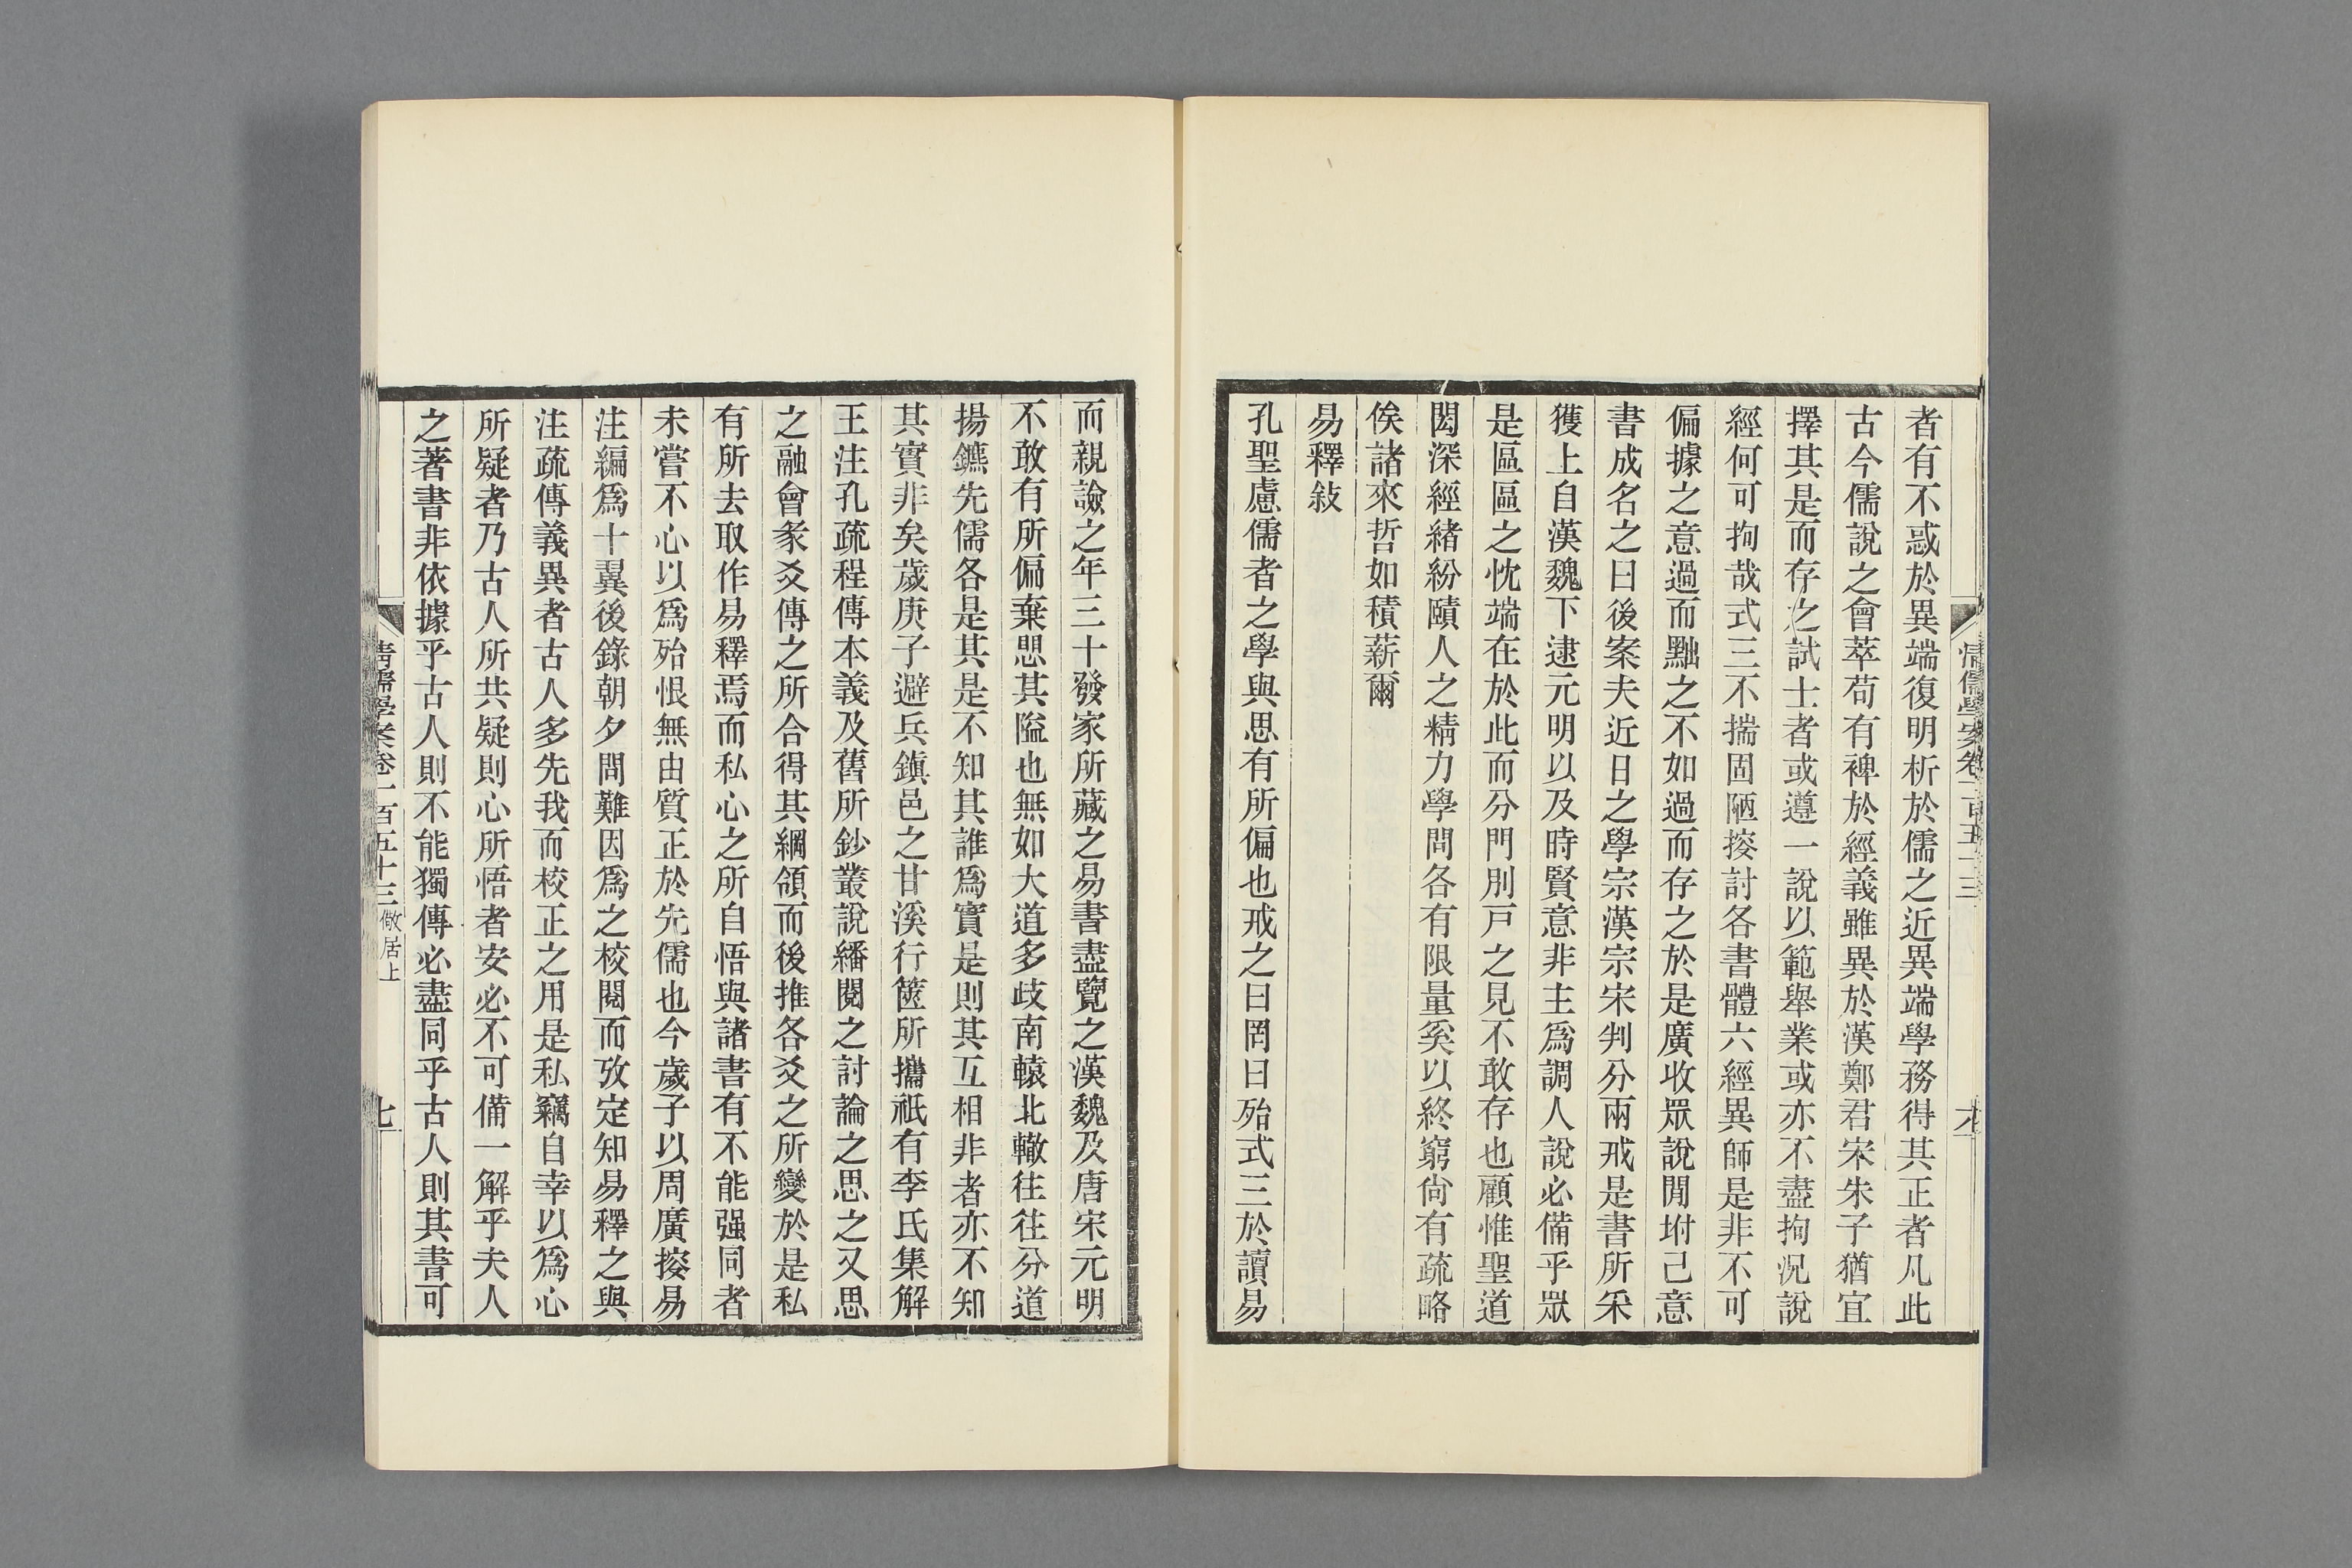 清儒學案卷一百五十三
六
者有不惑於異端復明析於儒之近異端學務得其正者凡此
古今儒說之會萃苟有裨於經義雖異於漢鄭君宋朱子猶宜
擇其是而存之試士者或遵一說以範舉業或亦不盡拘況說
經何可拘哉式三不揣固陋搜討各書體六經異師是非不可
偏據之意過而黜之不如過而存之於是廣收眾說閒坿己意
書成名之曰後案夫近日之學宗漢宗宋判分兩戒是書所采
獲上自漢魏下逮元明以及時賢意非主爲調人說必備乎眾
是區區之忱端在於此而分門別戸之見不敢存也顧惟聖道
閎深經緒紛賾人之精力學問各有限量奚以終窮尙有疏略
俟諸來哲如積薪爾
易釋敍
孔聖慮儒者之學與思有所偏也戒之曰罔曰殆式三於讀易
而親譣之年三十發家所藏之易書盡覽之漢魏及唐宋元明
不敢有所偏棄思其隘也無如大道多歧南轅北轍往往分道
揚鑣先儒各是其是不知其誰爲實是則其互相非者亦不知
其實非矣歲庚子避兵鎭邑之甘溪行篋所攜祇有李氏集解
王注孔疏程傳本義及舊所鈔叢說繙閱之討論之思之又思
之融會彖爻傳之所合得其綱領而後推各爻之所變於是私
有所去取作易釋焉而私心之所自悟與諸書有不能强同者
未嘗不心以爲殆恨無由質正於先儒也今歲子以周廣搜易
注編爲十翼後錄朝夕問難因爲之校閱而攷定知易釋之與
注疏傳義異者古人多先我而校正之用是私竊自幸以爲心
所疑者乃古人所共疑則心所悟者安必不可備一解乎夫人
之著書非依據乎古人則不能獨傳必盡同乎古人則其書可
清儒學案卷一百五十三 儆居上
七